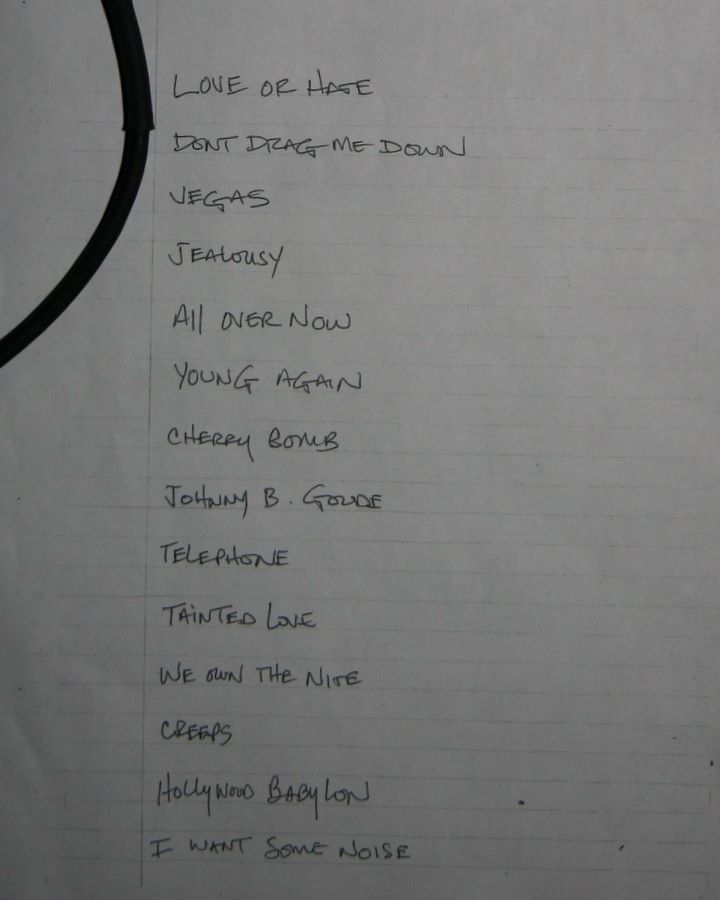 LOVE OR HATE
DONT DRAG ME DOWN
VEGAS
JEALOUSY
All OVER NOW
YOUNG AGAIN
CHERRY BOMB
JOHNNY B. GOUDE
TELEPHONE
TAINTED LOVE
WE OWN THE NITE
CREEPS
HOLLYWOOD BABYLON
I WANT SOME NOISE